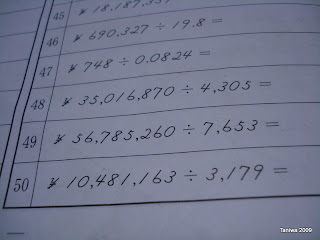 45 ¥ 18,187,33
46 ¥ 690,327 ÷ 19.8 =
47 ¥ 748 ÷ 0.0824 =
48 ¥ 35,016,870 ÷ 4,305 =
49 ¥ 56,785,260 ÷ 7,653 =
50 ¥ 10,481,163 ÷ 3,179 =
Taniwa 2009